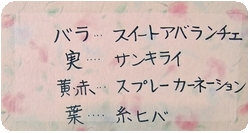 バラ… スイートアバランチェ
実… サンキライ
黄赤… スプレーカーネーション
葉…. 糸ヒバ